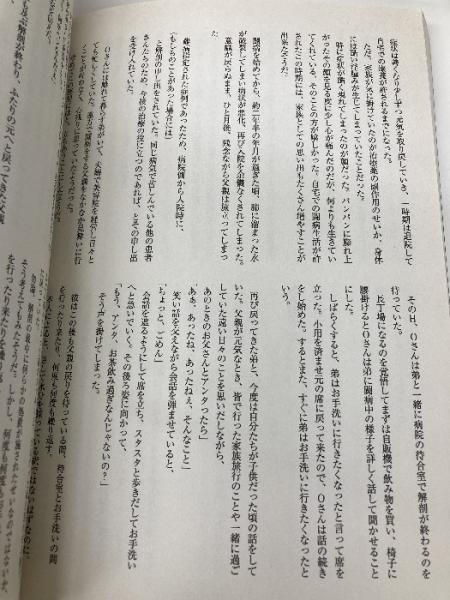 自宅での療養が許されるまでになった。
ただ、家族が気に掛けていたのが治療薬の副作用のせいか、身体
には酷い浮腫みが生じてしまっていたことだった。
特に症状が酷く現れてしまったのが顔だった。パンパンに腫れ上
がったその顔を見る度に少し心が痛んだのだが、何よりも生きてい
てくれている、そのことの方が嬉しかった。自宅での闘病生活が許
されたこの時期には、家族としての思い出もたくさん増やすことが
出来たそうだ。
闘病を始めてから、約二年半の年月が過ぎた頃、肺に溜まった水
が破裂してしまい病状が悪化、再び入院を余儀なくされてしまった。
意識が戻らぬまま、ひと月後、残念ながら父親は旅立ってしまっ
た。
難病指定された症例であったため、病院側から入院時に、
(もしものことがあった場合には)
と解剖の申し出をされていた。同じ病気で苦しんでいる他の患者
さんたちのため、今後の治療の役に立つのであれば、とその申し出
を受け入れていた。
Oさんには離れて暮らす弟がいて、夫婦で美容院を経営し日々と
ても忙しくしていた。
その日、Oさんは弟と一緒に病院の待合室で解剖が終わるのを
待っていた。
長丁場になるのを覚悟してまずは自販機で飲み物を買い、椅子に
腰掛けるとOさんは弟に闘病中の様子を詳しく話して聞かせること
にした。
しばらくすると、弟はお手洗いに行きたくなったと言って席を
立った。小用を済ませ元の席に戻って来たので、Oさんは話の続き
をし始めた。するとまた、すぐに弟はお手洗いに行きたくなったと
いう。
再び戻ってきた弟と、今度は自分たちが子供だった頃の話をして
いた。父親が元気なとき、皆で行った家族旅行のことや一緒に過ご
していた遠い日々のことを思い出しながら、
「あのときのお父さんとアンタったら」
「あぁ、あったね、あったねぇ、そんなこと」
笑い話を交えながら会話を弾ませていると、
「ちょっと、ごめん」
会話を遮るようにして席を立ち、スタスタと歩きだしてお手洗い
へと急いでいく。その後ろ姿に向かって、
「もう、アンタ、お茶飲み過ぎなんじゃないの？」
そう声を掛けてしまった。
彼はこの後も父親の戻りを待っている間、待合室とお手洗いの間
を行ったり来たり、何度も何度も繰り返す。